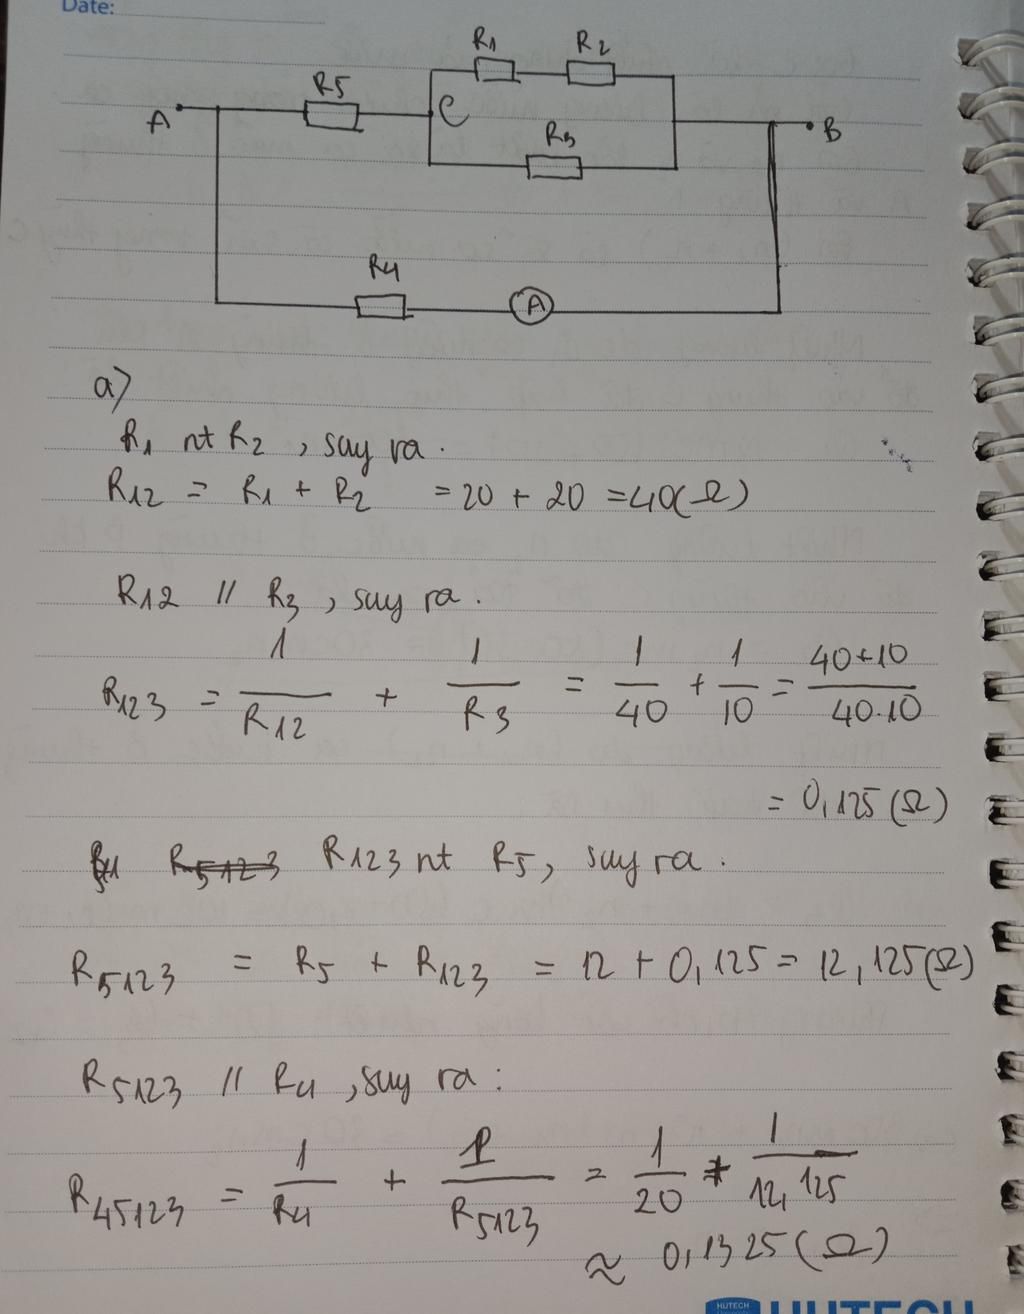 Date:
R1 R2
R5
A C B
R3
R4
A
a)
R1 nt R2, suy ra.
R12 = R1 + R2 = 20 + 20 = 40(Ω)
R12 // R3, suy ra.
R123 = 1/R12 + 1/R3 = 1/40 + 1/10 = 40+10/40.10
= 0,125(Ω)
R5123 R123 nt R5, suy ra.
R5123 = R5 + R123 = 12 + 0,125 = 12,125(Ω)
R5123 // R4, suy ra:
R45123 = 1/R4 + 1/R5123 = 1/20 + 1/12,125
≈ 0,1325(Ω)
HUTECH HUTECH